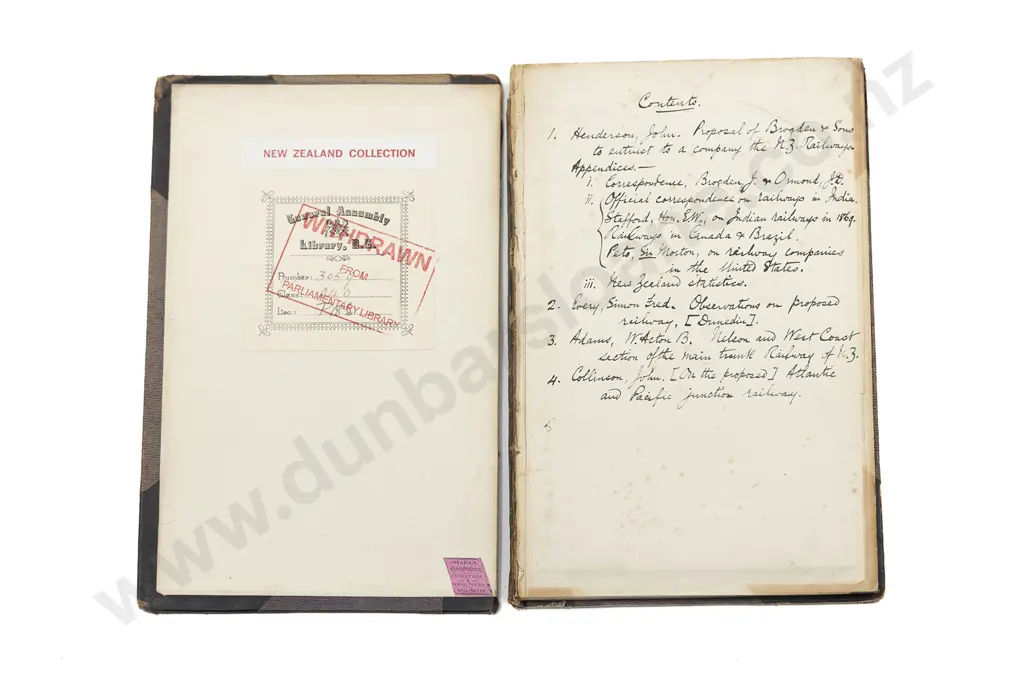 NEW ZEALAND COLLECTION
General Assembly
Library, N.Z.
Number:
Class:
Loc.:
WITHDRAWN
FROM
PARLIAMENTARY LIBRARY
LYON & BLAIR
WELLINGTON
Contents.
1. Henderson, John. Proposal of Brogden & Sons
to entrust to a company the N.Z. Railways.
Appendices.—
i. Correspondence, Brogden J. & Ormond, J.D.
ii. Official correspondence on railways in India.
Stafford, Hon. E.W., on Indian railways in 1869.
Railways in Canada & Brazil.
Peto, Sir Morton, on railway companies
in the United States.
iii. New Zealand statistics.
2. Every, Simon Fred. Observations on proposed
railway, [Dunedin].
3. Adams, W. Acton B. Nelson and West Coast
section of the main trunk Railway of N.Z.
4. Collinson, John. [On the proposed] Atlantic
and Pacific junction railway.
www.dunbarsloane.co.nz